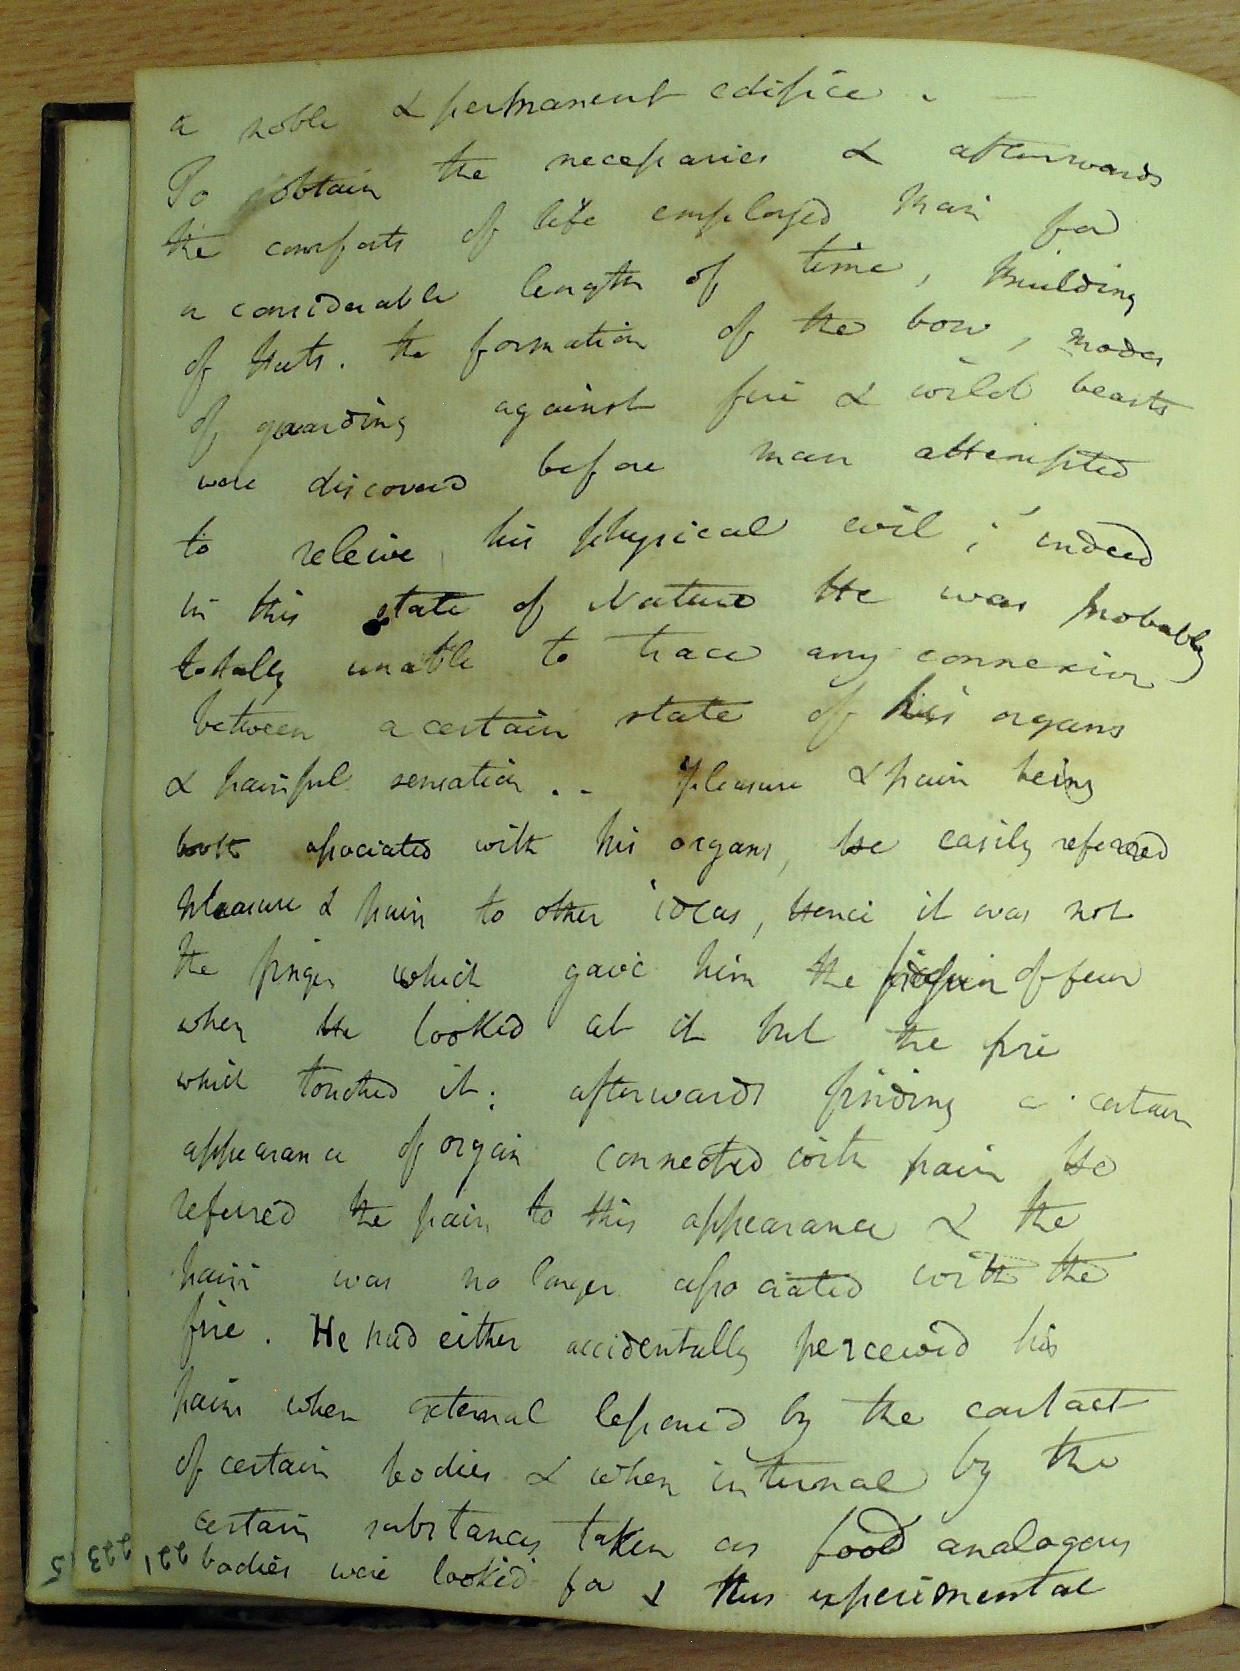 a noble & permanent edifice. —
To obtain the necessaries & afterwards
the comforts of life employed Man for
a considerable length of time, Building
of Huts. the formation of the bow, modes
of guarding against fire & wild beasts
were discovered before man attempted
to releive his physical evil; indeed
in this state of Nature He was probably
totally unable to trace any connexion
between a certain state of his organs
& painful sensation. - Pleasure & pain being
both associated with his organs, he easily referred
pleasure & pain to other ideas, Hence it was not
the finger which gave him the pain of fear
when He looked at it but the fire
which touched it; afterwards finding a certain
appearance of organ connected with pain He
referred the pain to this appearance & the
pain was no longer associated with the
fire. He had either accidentally perceived his
pains when external lessened by the contact
of certain bodies & when internal by the
certain substances taken as food analogous
bodies were looked for & thus experimental
221
223